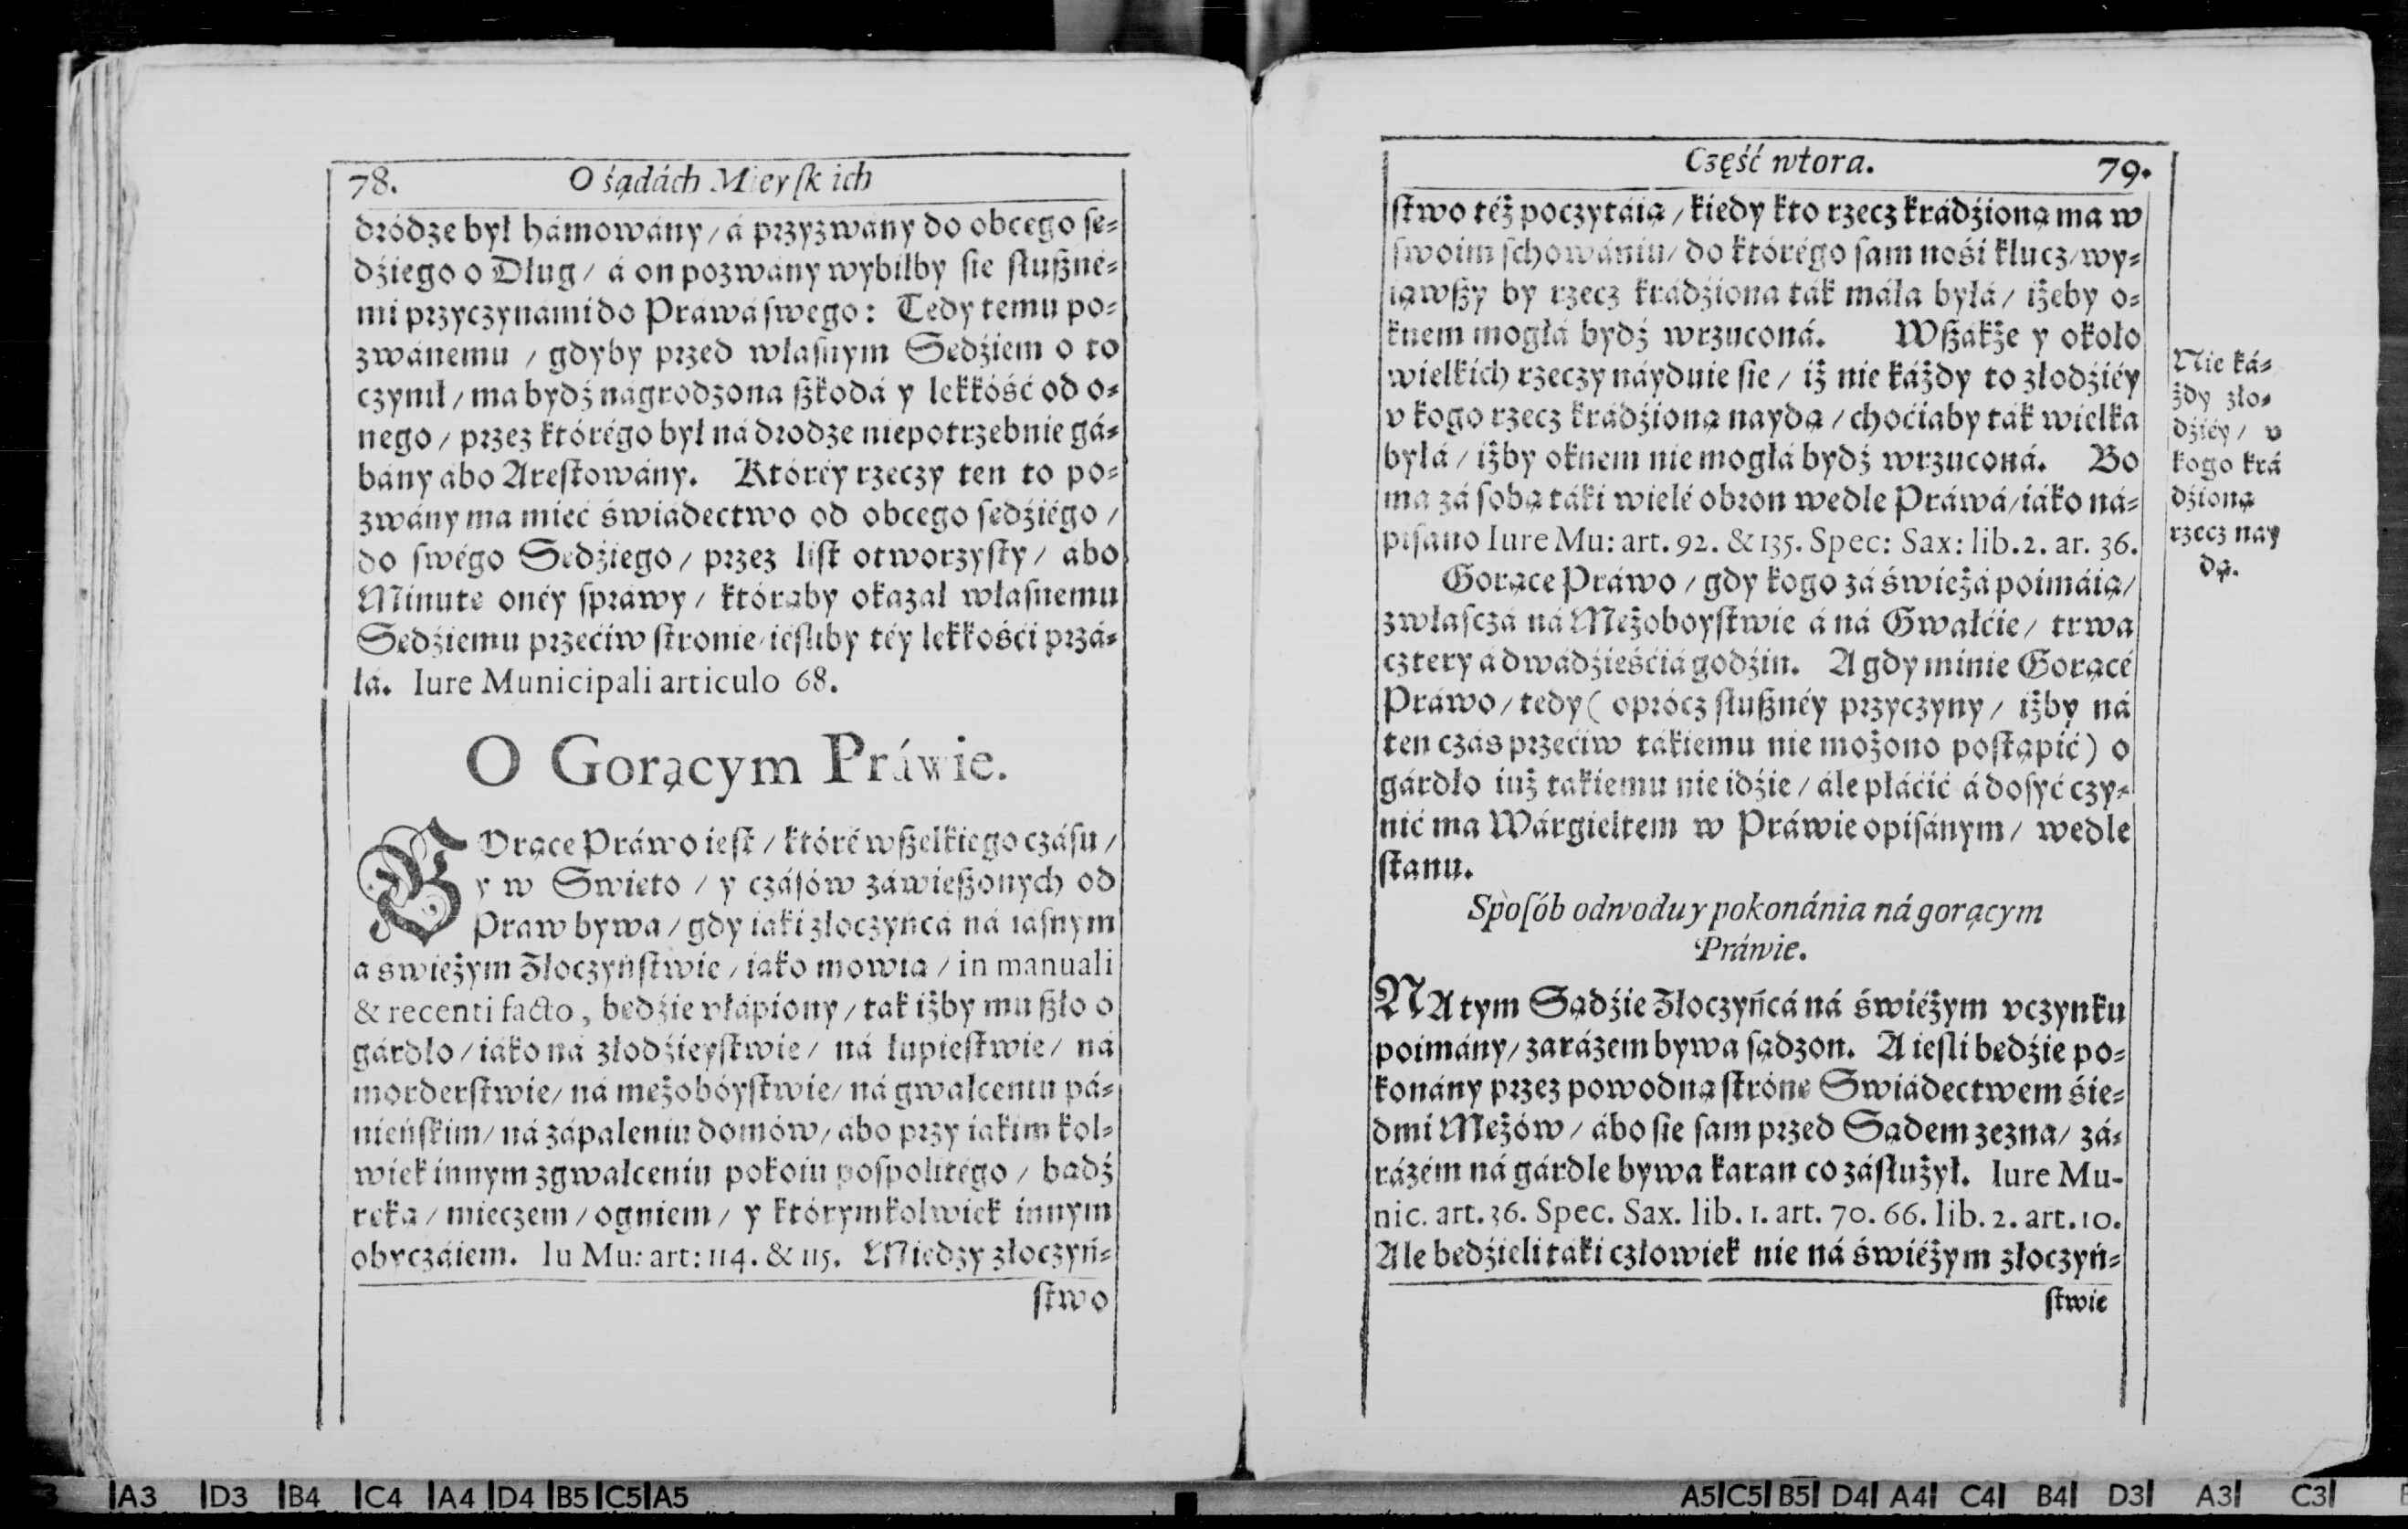 78. O śądách Mieyſkich
dródze był hámowány / á przyzwány do obcego ſe-
dźiego o Dług / á on pozwány wybiłby ſie ſłuſzné-
mi przyczynámi do Práwá ſwego: Tedy temu po-
zwánemu / gdyby przed właſnym Sedźiem o to
czynił / ma bydź nágrodzona ſzkodá y lekkóść od o-
nego / przez którégo był ná drodze niepotrzebnie gá-
bány ábo Areſtowány. Któréy rzeczy ten to po-
zwány ma mieć świádectwo od obcego ſedźiégo /
do ſwégo Sedźiego / przez liſt otworzyſty / ábo
Minute onéy ſpráwy / którąby okazał włáſnemu
Sedźiemu przećiw ſtronie / ieſliby téy lekkośći przá-
łá. Iure Municipali articulo 68.
O Gorącym Práwie.
GOrące Práwo ieſt / któré wſzelkiego czáſu /
y w Swieto / y czáſów záwieſzonych od
Praw bywa / gdy iáki złoczyńcá ná iáſnym
a swieżym Złoczyńſtwie / iáko mowią / in manuali
& recenti facto, bedźie vłápiony / ták iżby mu ſzło o
gárdło / iáko ná złodźieyſtwie / ná łupieſtwie / ná
morderſtwie / ná meżobóyſtwie / ná gwałceniu pá-
nieńſkim / ná zápaleniu domów / ábo przy iákim kol-
wiek innym zgwałceniu pokoiu poſpolitégo / bądź
reką / mieczem / ogniem / y którymkolwiek innym
obyczáiem. Iu Mu: art: 114. & 115. Miedzy złoczyń-
ſtwo
Część wtora. 79.
ſtwo téż poczytáią / kiedy kto rzecz krádźioną ma w
ſwoim ſchowániu / do którégo ſam nośi klucz / wy-
iąwſzy by rzecz krádźiona ták máła byłá / iżeby o-
knem mogłá bydź wrzuconá. Wſzákże y około
wielkich rzeczy náyduie ſie / iż nie káżdy to złodźiéy
v kogo rzecz krádźioną naydą / choćiaby ták wielka
byłá / iżby oknem nie mogłá bydź wrzuconá. Bo
ma zá ſobą táki wielé obron wedle Práwá / iáko ná-
piſano Iure Mu: art. 92. & 135. Spec: Sax: lib. 2. ar. 36.
Gorące Práwo / gdy kogo zá świeżá poimáią /
zwłaſczá ná Meżoboyſtwie á ná Gwałćie / trwa
cztery á dwádźieśćiá godźin. A gdy minie Gorącé
Práwo / tedy ( oprócz ſłuſznéy przyczyny / iżby ná
ten czás przećiw tákiemu nie możono poſtąpić) o
gárdło iuż takiemu nie idźie / ále płáćić á doſyć czy-
nić ma Wárgieltem w Práwie opiſánym / wedle
ſtanu.
Spoſób odwodu y pokonánia ná gorącym
Práwie.
NA tym Sądźie Złoczyńcá ná świéżym vczynku
poimány / zarázem bywa ſądzon. A ieſli bedźie po-
konány przez powodną ſtróne Swiádectwem śie-
dmi Meżów / ábo ſie ſam przed Sądem zezna / zá-
rázém ná gárdle bywa karan co záſłużył. Iure Mu-
nic. art. 36. Spec. Sax. lib. 1. art. 70. 66. lib. 2. art. 10.
Ale bedźieli táki człowiek nie ná świéżym złoczyń-
ſtwie
Nie ká-
żdy zło-
dźiéy / v
kogo krá
dźioną
rzecz nay
dą.
A3 D3 B4 C4 A4 D4 B5 C5 A5
A5 C5 B5 D4 A4 C4 B4 D3 A3 C3